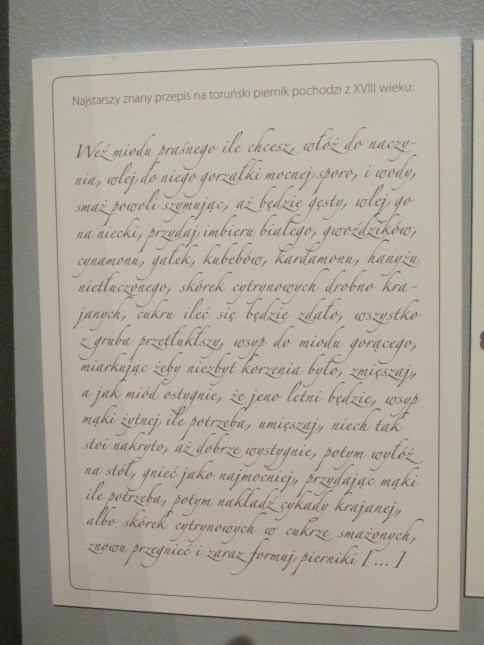 Najstarszy znany przepis na toruński piernik pochodzi z XVIII wieku:
Weź miodu praśnego ile chcesz, włóż do naczy-
nia, wlej do niego gorzałki mocnej sporo, i wody,
smaż powoli szymując, aż będzie gęsty, wlej go
na niecki, przydaj imbieru białego, gwoździków,
cynamonu, gałek, kubebów, kardamonu, hanyżu
nietłuczonego, skórek cytrynowych drobno kra-
janych, cukru ileć się będzie zdało, wszystko
z gruba przetłukłszy, wsyp do miodu gorącego,
miarkując żeby niezbyt korzenia było, zmięszaj,
a jak miód ostygnie, że jeno letni będzie, wsyp
mąki żytnej ile potrzeba, umięszaj, niech tak
stoi nakryto, aż dobrze wystygnie, potym wyłóż
na stół, gnieć jako najmocniej, przydając mąki
ile potrzeba, potym nakładź cykady krajanej,
albo skórek cytrynowych w cukrze smażonych,
znowu przegnieć i zaraz formuj pierniki [ ... ]